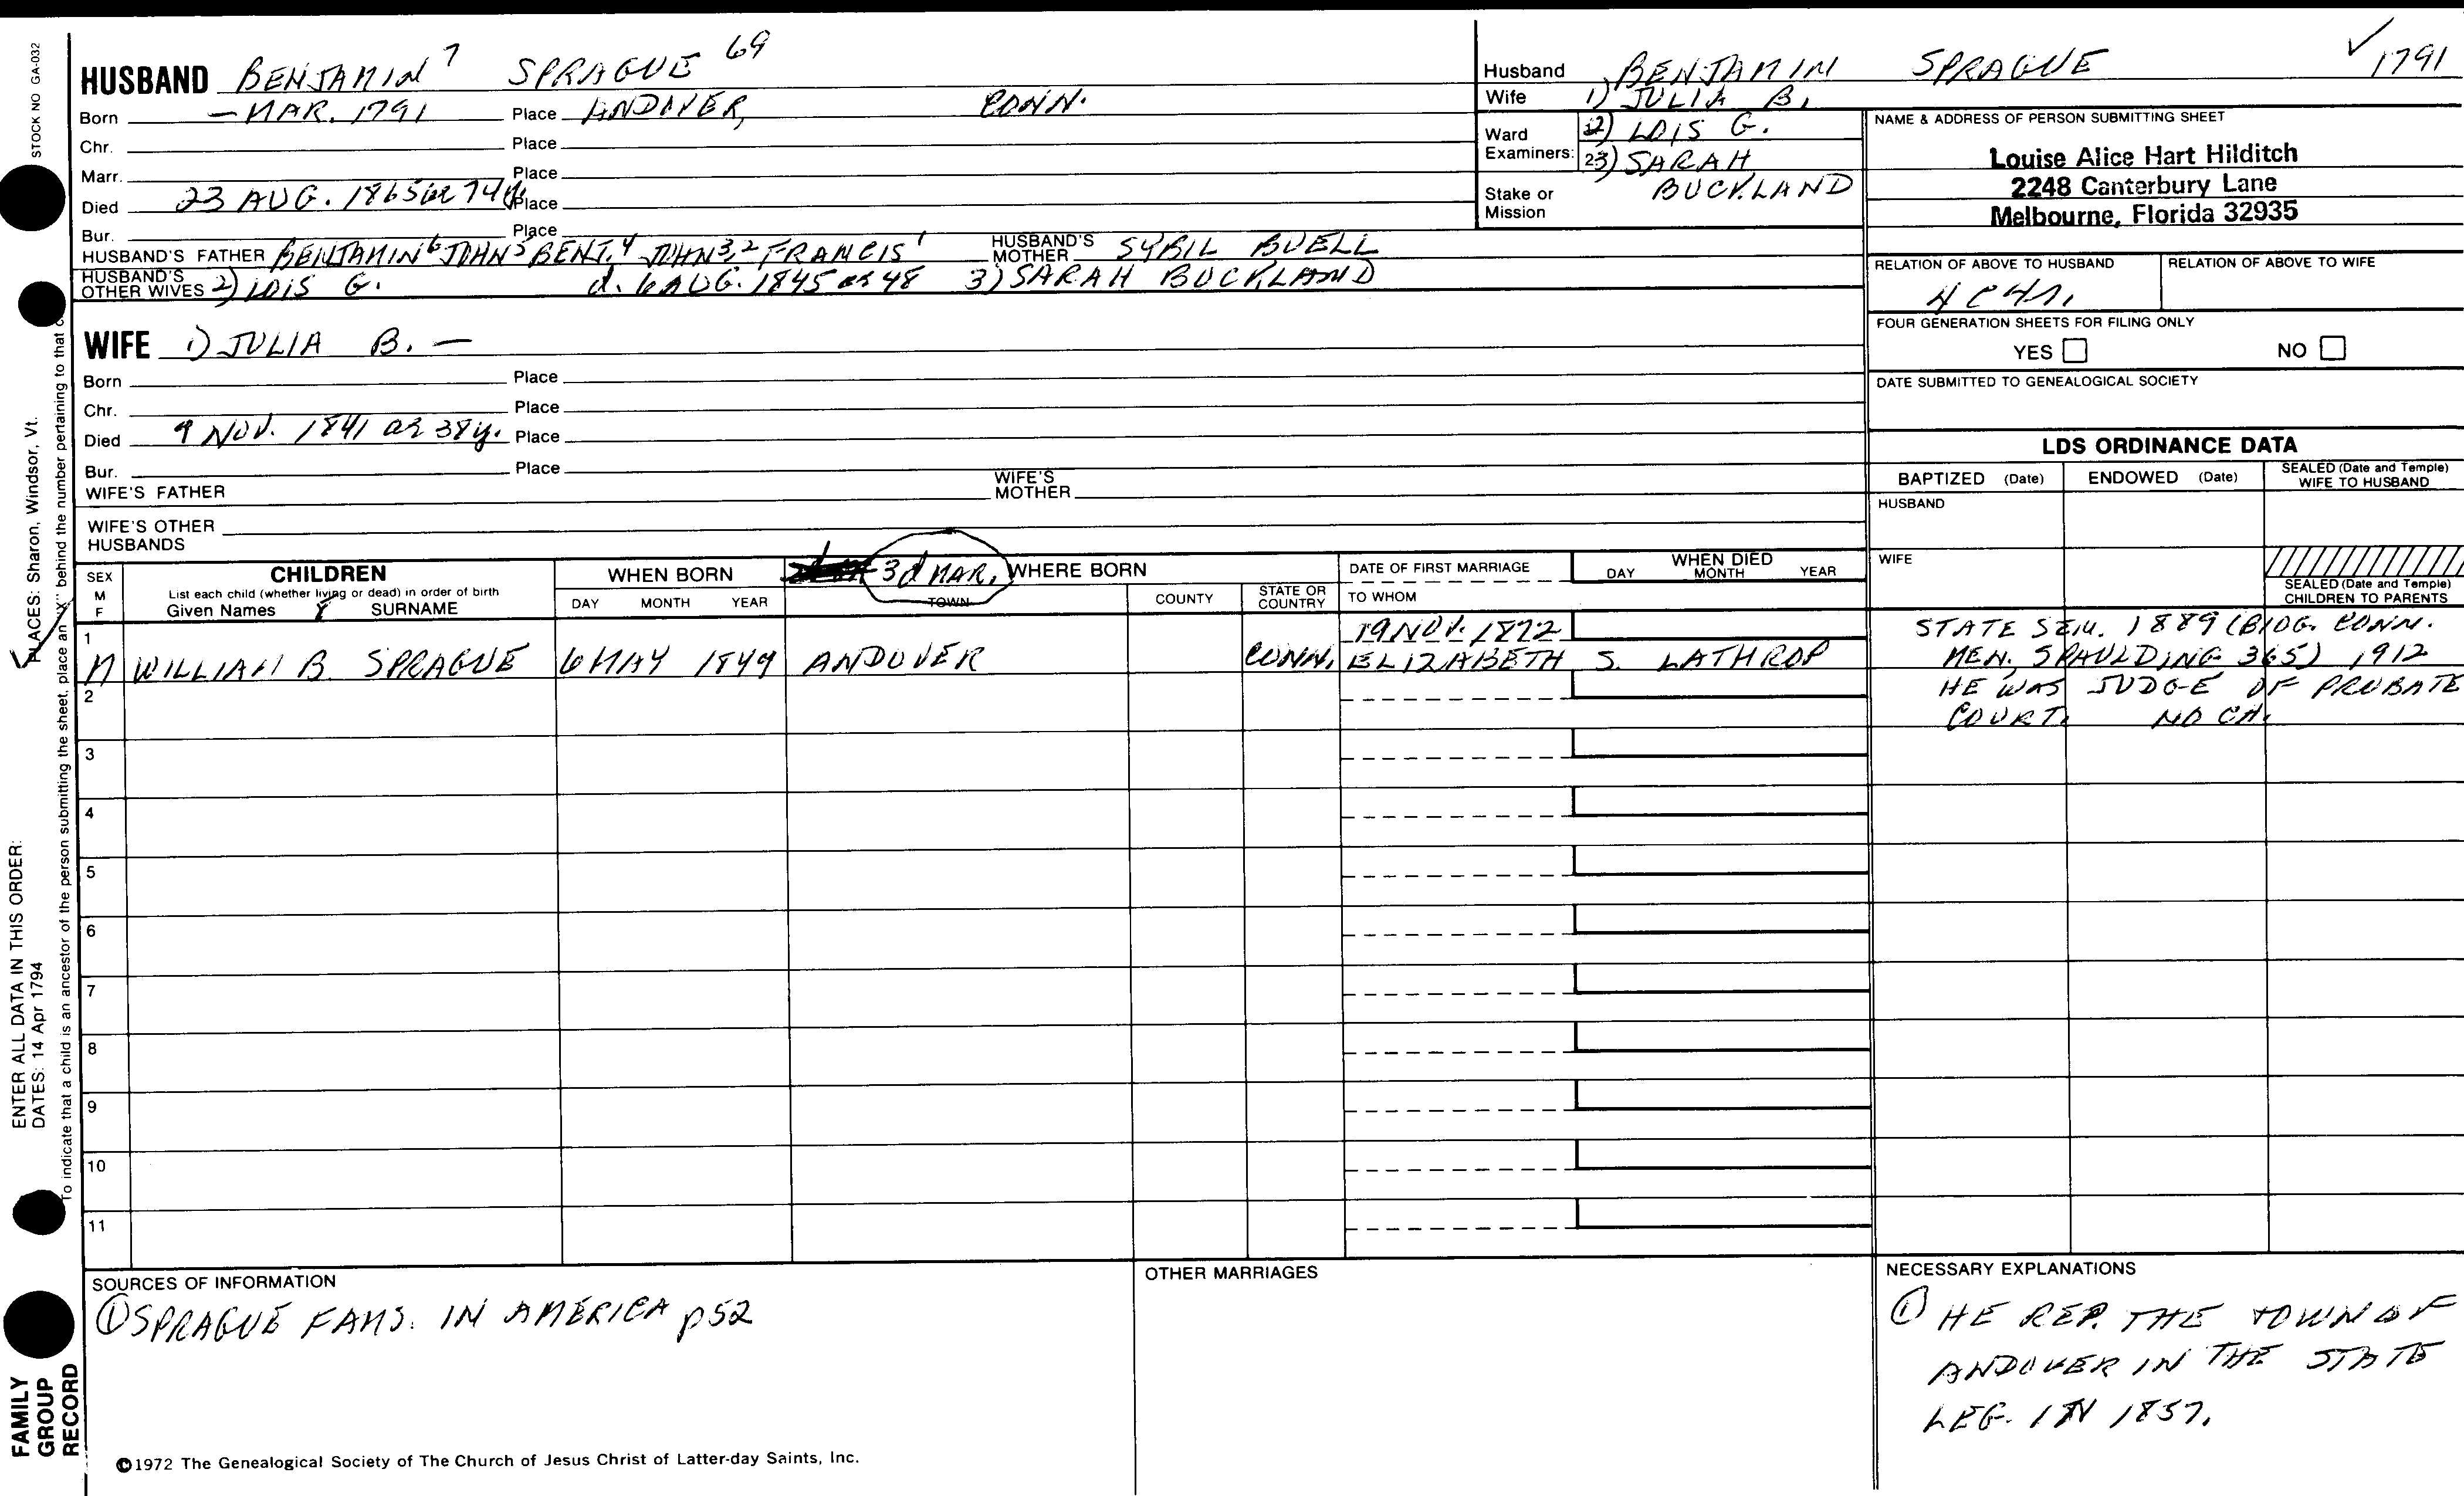 STOCK NO GA-032
HUSBAND BENJAMIN 7 SPRAGUE 69
Born - MAR. 1791 Place ANDOVER, CONN.
Chr. Place
Marr. Place
Died 23 AUG. 1865 ae 74y. Place
Bur. Place
HUSBAND'S FATHER BENJAMIN 6 JOHN 5 BENJ. 4 JOHN 3,2 FRANCIS 1 HUSBAND'S MOTHER SYBIL BUELL
HUSBAND'S OTHER WIVES 2) LOIS G. d. 6 AUG. 1845 ae 48 3) SARAH BUCKLAND
WIFE 1) JULIA B. —
Born Place
Chr. Place
Died 9 NOV. 1841 ae 38y. Place
Bur. Place
WIFE'S FATHER WIFE'S MOTHER
WIFE'S OTHER HUSBANDS
Husband BENJAMIN SPRAGUE 1791
Wife 1) JULIA B.
Ward Examiners: 1 2) LOIS G.
2 3) SARAH BUCKLAND
Stake or Mission
NAME & ADDRESS OF PERSON SUBMITTING SHEET
Louise Alice Hart Hilditch
2248 Canterbury Lane
Melbourne, Florida 32935
RELATION OF ABOVE TO HUSBAND RELATION OF ABOVE TO WIFE
4C4R.
FOUR GENERATION SHEETS FOR FILING ONLY
YES NO
DATE SUBMITTED TO GENEALOGICAL SOCIETY
LDS ORDINANCE DATA
BAPTIZED (Date) ENDOWED (Date) SEALED (Date and Temple) WIFE TO HUSBAND
HUSBAND
WIFE
SEALED (Date and Temple) CHILDREN TO PARENTS
SEX M F
CHILDREN
List each child (whether living or dead) in order of birth
Given Names SURNAME
WHEN BORN
DAY MONTH YEAR
3d MAR. WHERE BORN
TOWN COUNTY STATE OR COUNTRY
DATE OF FIRST MARRIAGE
TO WHOM
WHEN DIED
DAY MONTH YEAR
1 19 NOV. 1872
M WILLIAM B. SPRAGUE 6 MAY 1849 ANDOVER CONN. ELIZABETH S. LATHROP
STATE SEN. 1889 (BIOG. CONN.
MEN, SPAULDING 365) 1912
HE WAS JUDGE OF PROBATE
COURT. NO CH.
2
3
4
5
6
7
8
9
10
11
SOURCES OF INFORMATION
① SPRAGUE FAMS. IN AMERICA p52
OTHER MARRIAGES
NECESSARY EXPLANATIONS
① HE REP. THE TOWN OF
ANDOVER IN THE STATE
LEG. IN 1857.
©1972 The Genealogical Society of The Church of Jesus Christ of Latter-day Saints, Inc.
ENTER ALL DATA IN THIS ORDER:
DATES: 14 Apr 1794
PLACES: Sharon, Windsor, Vt.
To indicate that a child is an ancestor of the person submitting the sheet, place an "X" behind the number pertaining to that
FAMILY
GROUP
RECORD